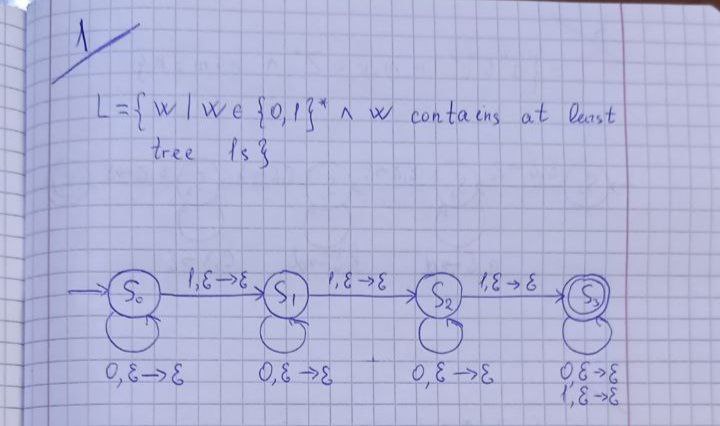 1
L = { w | w ∈ {0,1}* ∧ w contains at least
tree 1s }
1,ε→ε 1,ε→ε 1,ε→ε
S₀ S₁ S₂ S₃
0,ε→ε 0,ε→ε 0,ε→ε 0,ε→ε
1,ε→ε